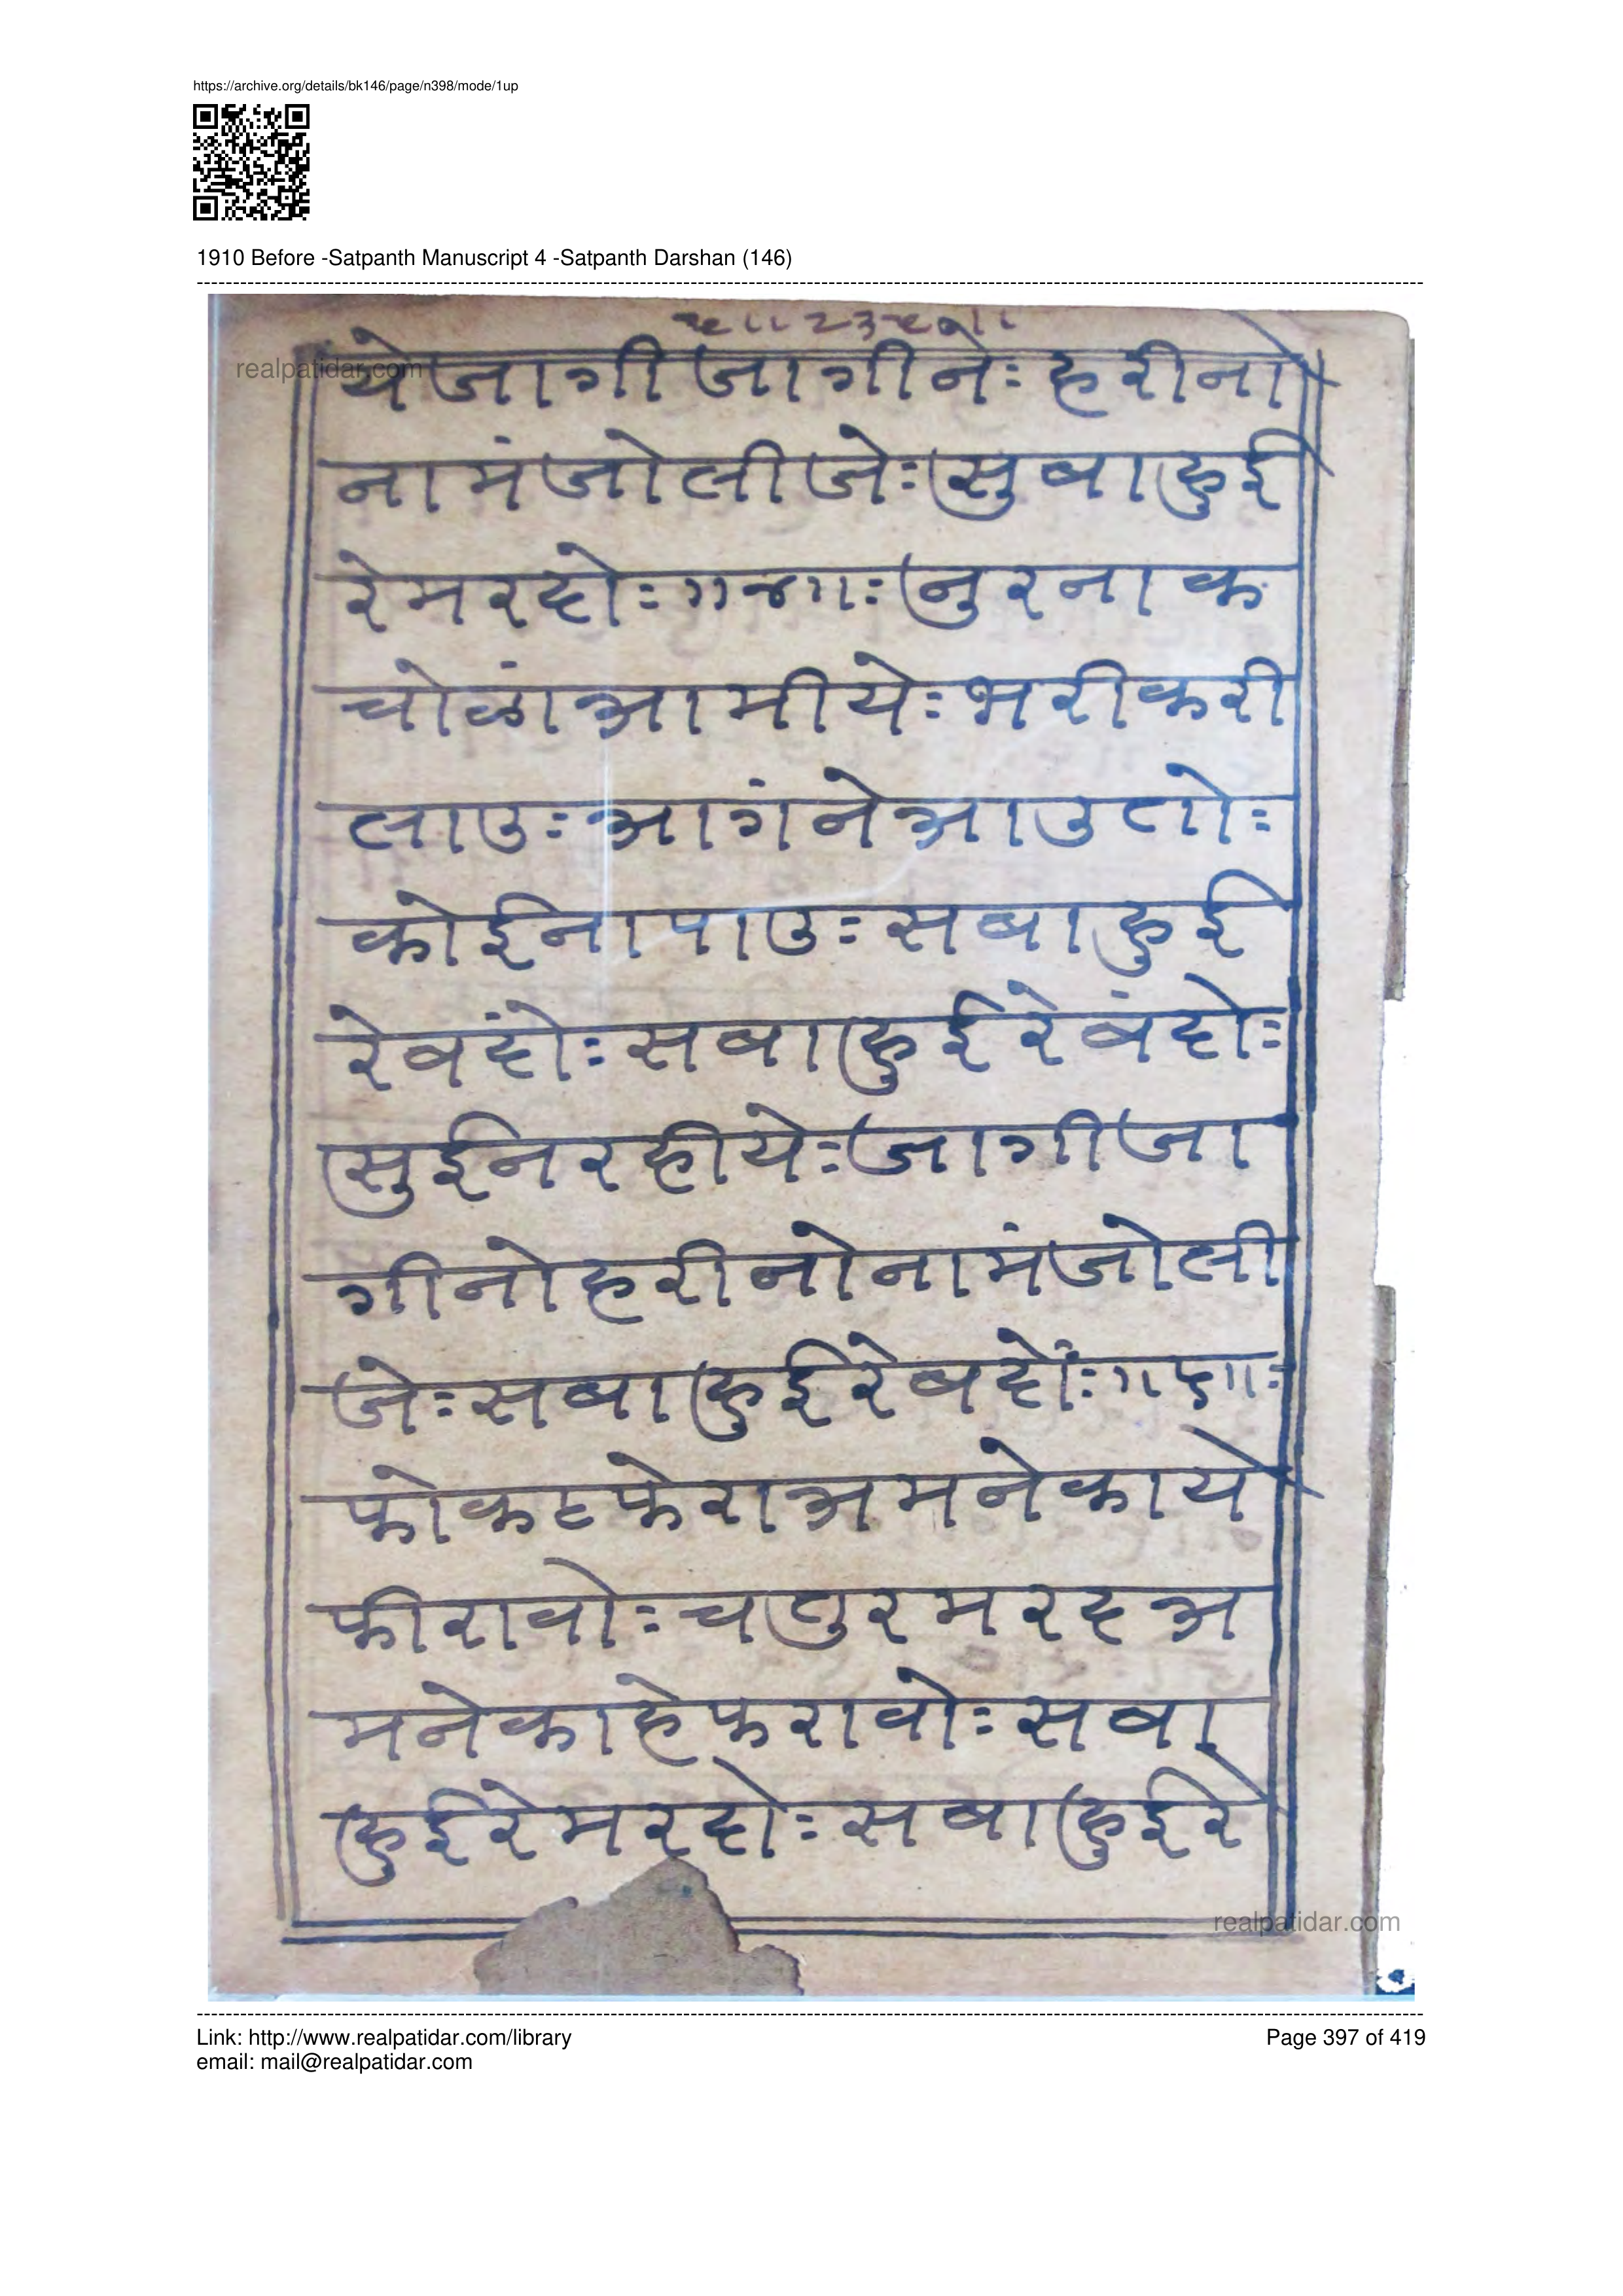 https://archive.org/details/bk146/page/n398/mode/1up
1910 Before -Satpanth Manuscript 4 -Satpanth Darshan (146)
realpatidar.com
येजागीजागीनेः हरीनो
नामंजोलीजेः सुबाहुई
रेमरदोः ॥४॥ः नुरनाक
चोळांआमीयेः भरीकरी
लाउः आगंनेआउतोः
कोईनापाउः सबाहुई
रेबंदोः सबाहुईरेबंदोः
सुईनरहीयेः जागीजा
गीनोहरीनोनामंजोली
जेः सबाहुईरेबदोंः ॥५॥ः
फोकटफेराअमनेकाये
फीरावोः चतुरमरदअ
मनेकाहेफरावोः सबा
हुईरेमरदोः सबाहुईरे
realpatidar.com
Link: http://www.realpatidar.com/library
Page 397 of 419
email: mail@realpatidar.com